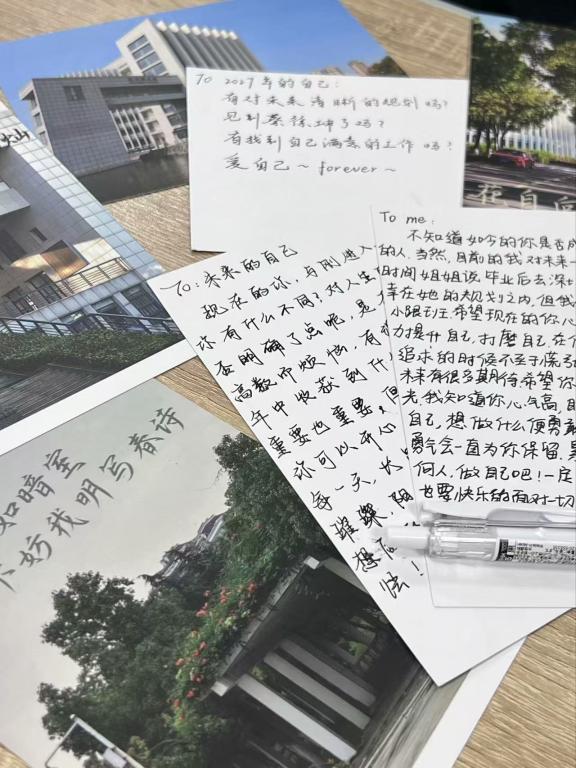 To 2027年的自己:
有对未来清晰的规划吗?
见到蔡徐坤了吗?
有找到自己满意的工作吗?
爱自己~forever~
花自向
火山
To me:
不知道如今的你是否成
的人,当然,目前的我对未来一
但时间姐姐说毕业后去深
幸在她的规划之内,但我
小跟班,希望现在的你心
力提升自己,打磨自己,在个
追求的时候不至于慌
未来有很多期待,希望你
光,我知道你心气高,
自己,想做什么便勇敢
勇气会一直为你保留,
何人,做自己吧!一定
也要快乐的面对一切
To:未来的自己
现在的你,与刚进入
你有什么不同?对人生
否明确了点呢,是
高数而烦恼,有
年中收获到什
重要也重要,但
你可以开心
每一天,
璀璨,阳
怯!
如暗室
不妨我明写春诗